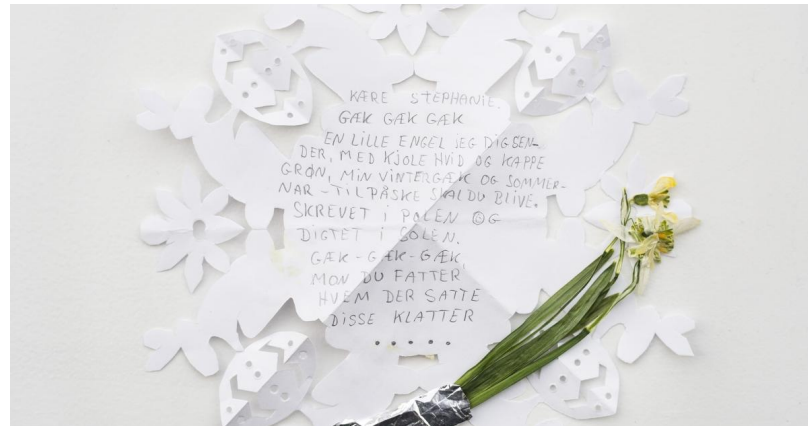 KÆRE STEPHANIE.
GÆK GÆK GÆK
EN LILLE ENGEL JEG DIG SEN-
DER, MED KJOLE HVID OG KAPPE
GRØN, MIN VINTERGÆK OG SOMMER-
NAR - TIL PÅSKE SKAL DU BLIVE.
SKREVET i POLEN OG
DIGTET i SOLEN.
GÆK - GÆK - GÆK
MON DU FATTER
HVEM DER SATTE
DISSE KLATTER
. . . . .